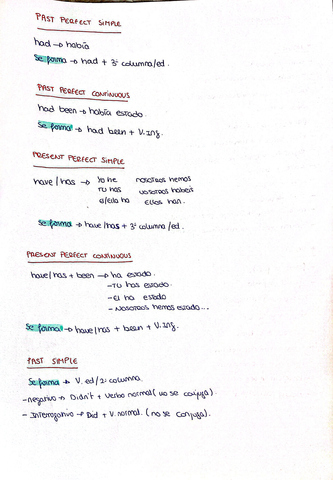 PAST PERFECT SIMPLE
had → había
Se forma → had + 3ª columna/ed.
PAST PERFECT CONTINUOUS
had been → había estado.
Se forma → had been + V.ing.
PRESENT PERFECT SIMPLE
have/has → Yo he nosotros hemos
Tu has vosotros habeis
el/ella ha ellos han.
Se forma → have/has + 3ª columna/ed.
PRESENT PERFECT CONTINUOUS
have/has + been → ha estado.
-Tu has estado.
-El ha estado
-Nosotros hemos estado...
Se forma → have/has + been + V.ing.
PAST SIMPLE
Se forma → V.ed/2ª columna.
-negativo → Didn't + verbo normal (no se conjuga).
- Interrogativo → Did + V.normal. (no se conjuga).